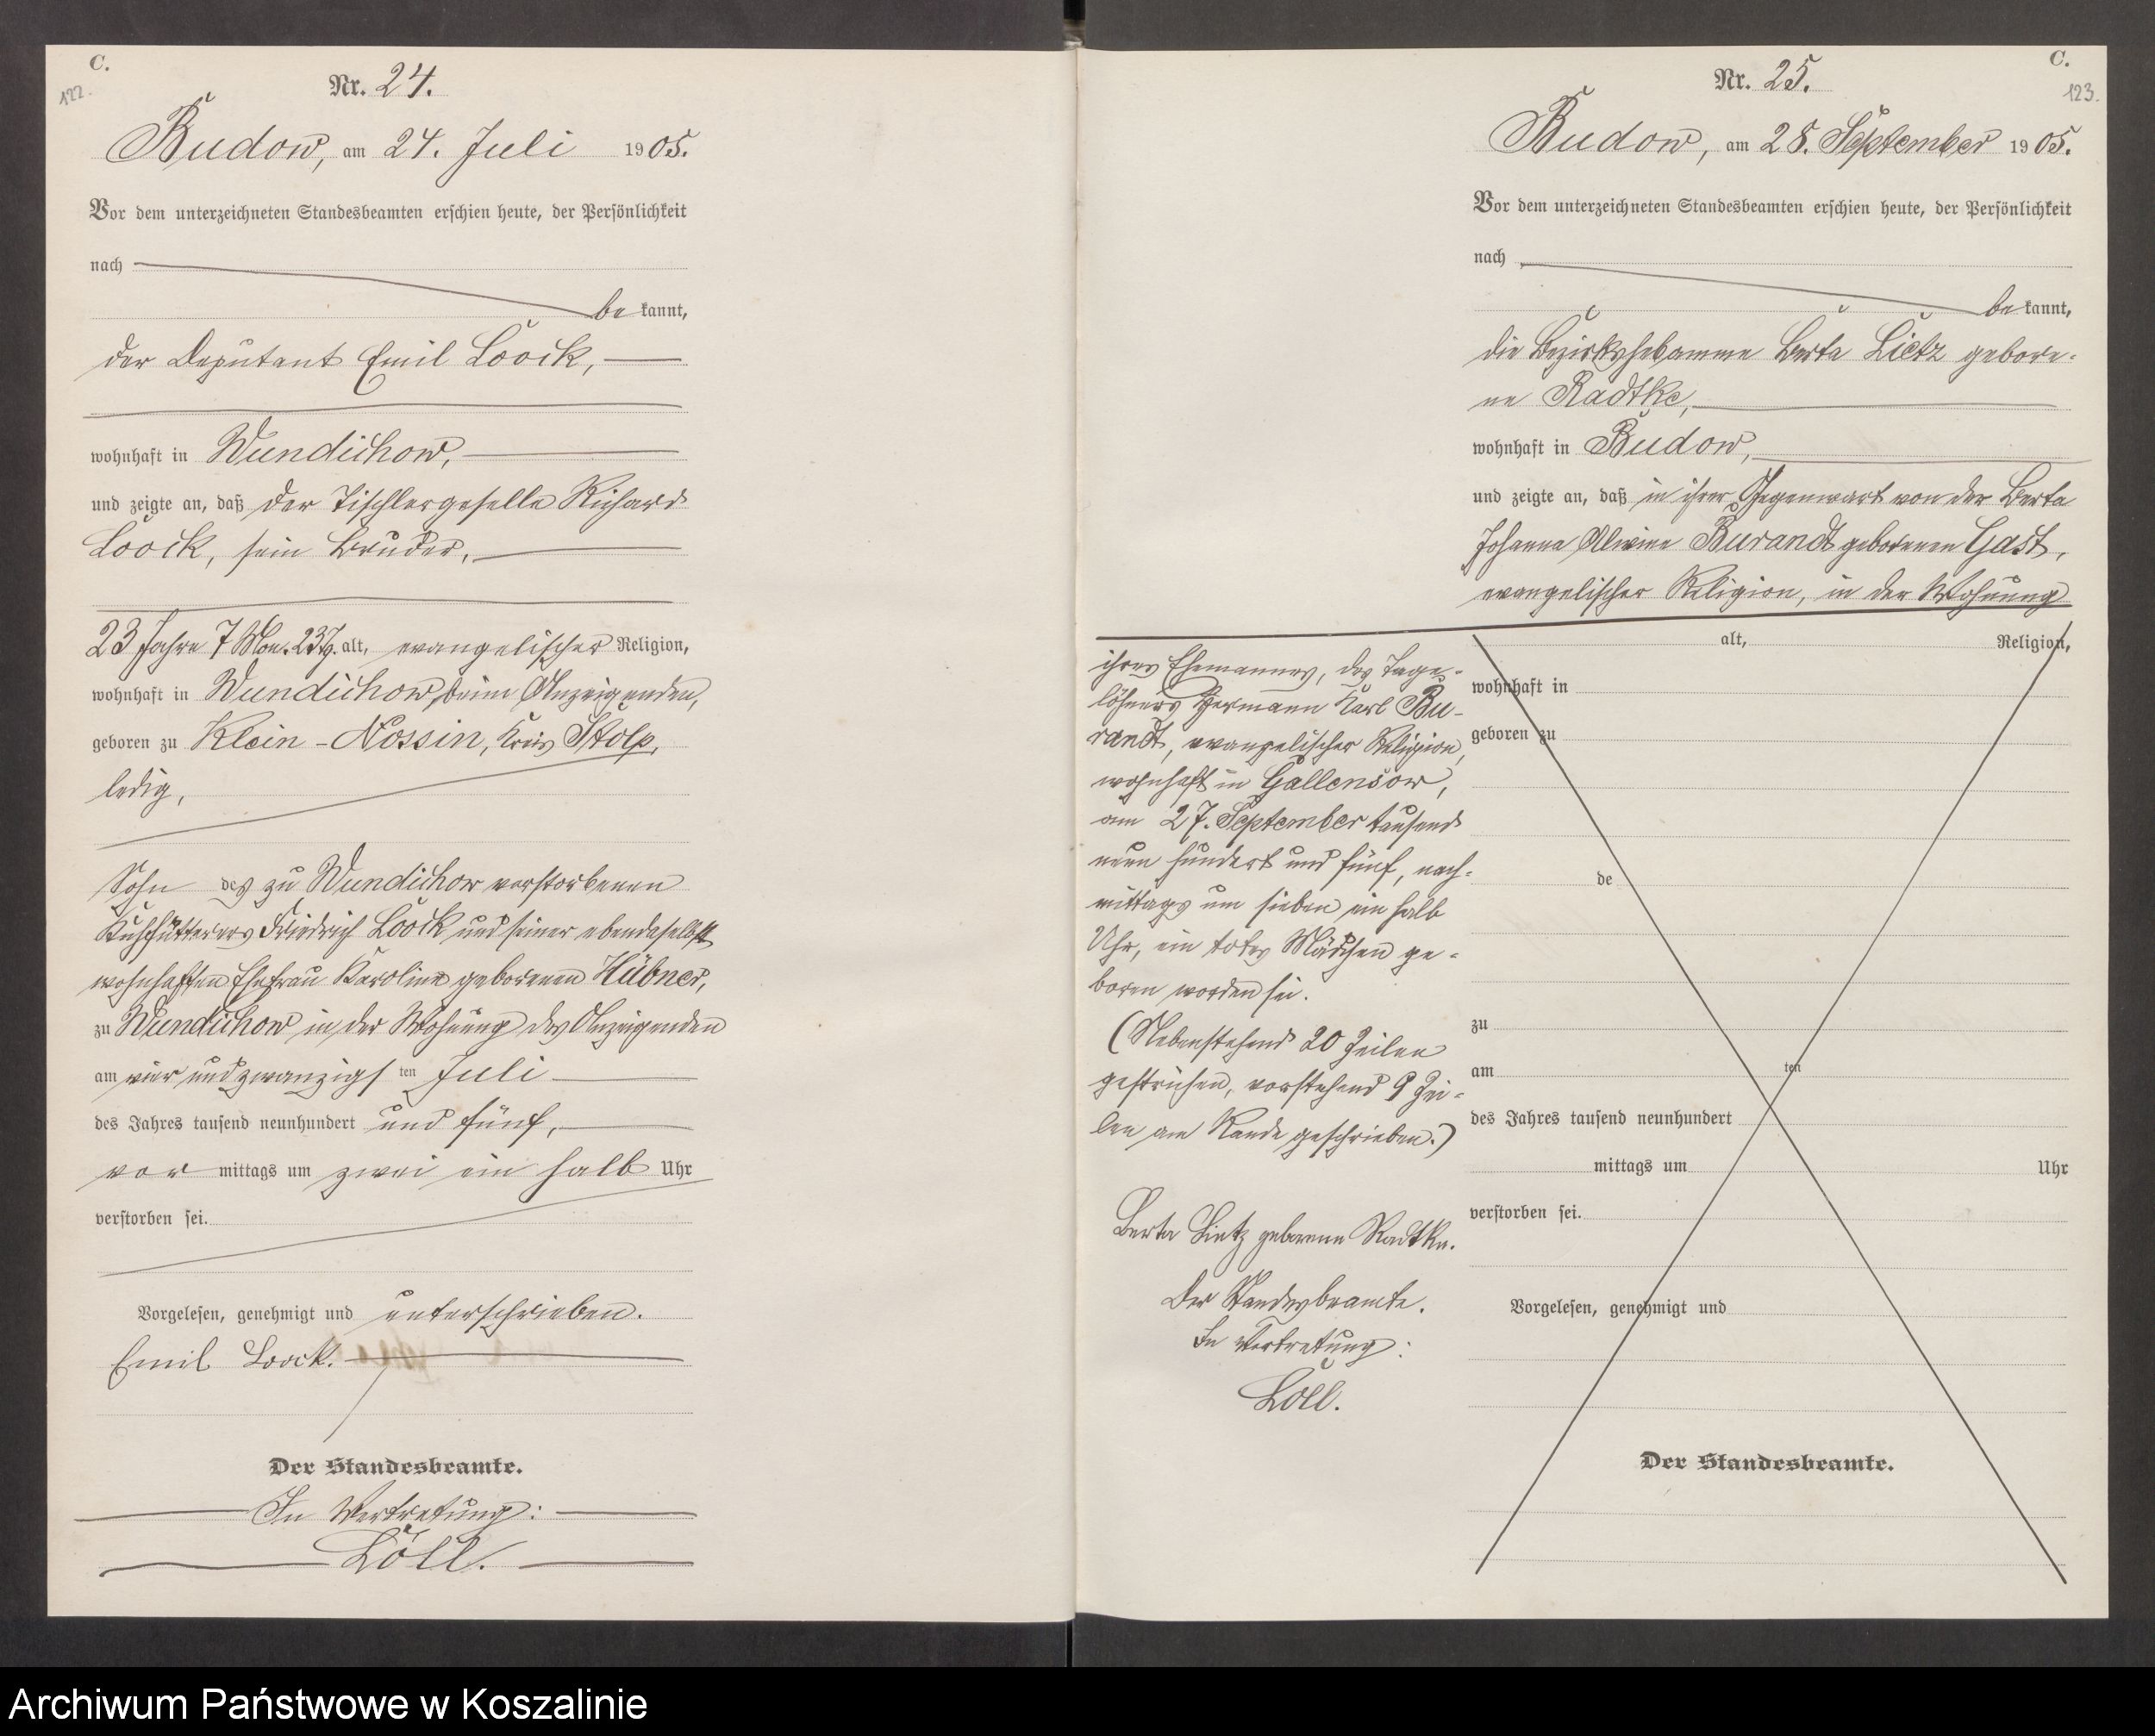 C.
122.
Nr. 24.
Budow, am 24. Juli 1905.
Vor dem unterzeichneten Standesbeamten erschien heute, der Persönlichkeit
nach
be kannt,
der Deputant Emil Loock,
wohnhaft in Wundichow,
und zeigte an, daß der Tischlergeselle Richard
Loock, sein Bruder,
23 Jahre 7 Mon. 23 Tg. alt, evangelischer Religion,
wohnhaft in Wundichow, beim Anzeigenden,
geboren zu Klein-Nossin, Kreis Stolp,
ledig,
Sohn des zu Wundichow verstorbenen
Kuhfütterers Friedrich Loock und seiner ebendaselbst
wohnhaften Ehefrau Karoline geborenen Hübner,
zu Wundichow in der Wohnung des Anzeigenden
am vier und zwanzigsten Juli
des Jahres tausend neunhundert und fünf,
vor mittags um zwei ein halb Uhr
verstorben sei.
Vorgelesen, genehmigt und unterschrieben.
Emil Loock.
Der Standesbeamte.
In Vertretung:
Löll.
C.
123.
Nr. 25.
Budow, am 28. September 1905.
Vor dem unterzeichneten Standesbeamten erschien heute, der Persönlichkeit
nach
be kannt,
die Bezirkshebamme Berta Lietz gebore-
ne Radtke,
wohnhaft in Budow,
und zeigte an, daß in ihrer Gegenwart von der Berta
Johanna Alwine Burandt geborenen Gast,
evangelischer Religion, in der Wohnung
ihres Ehemannes, des Tage-
löhners Hermann Karl Bu-
randt, evangelischer Religion,
wohnhaft in Gallensow,
am 27. September tausend
neun hundert und fünf, nach-
mittags um sieben ein halb
Uhr, ein totes Mädchen ge-
boren worden sei.
(Nebenstehend 20 Zeilen
gestrichen, vorstehend 9 Zei-
len am Rande geschrieben.)
Berta Lietz geborene Radtke.
Der Standesbeamte.
In Vertretung:
Löll.
alt, Religion,
wohnhaft in
geboren zu
de
zu
am ten
des Jahres tausend neunhundert
mittags um Uhr
verstorben sei.
Vorgelesen, genehmigt und
Der Standesbeamte.
Archiwum Państwowe w Koszalinie